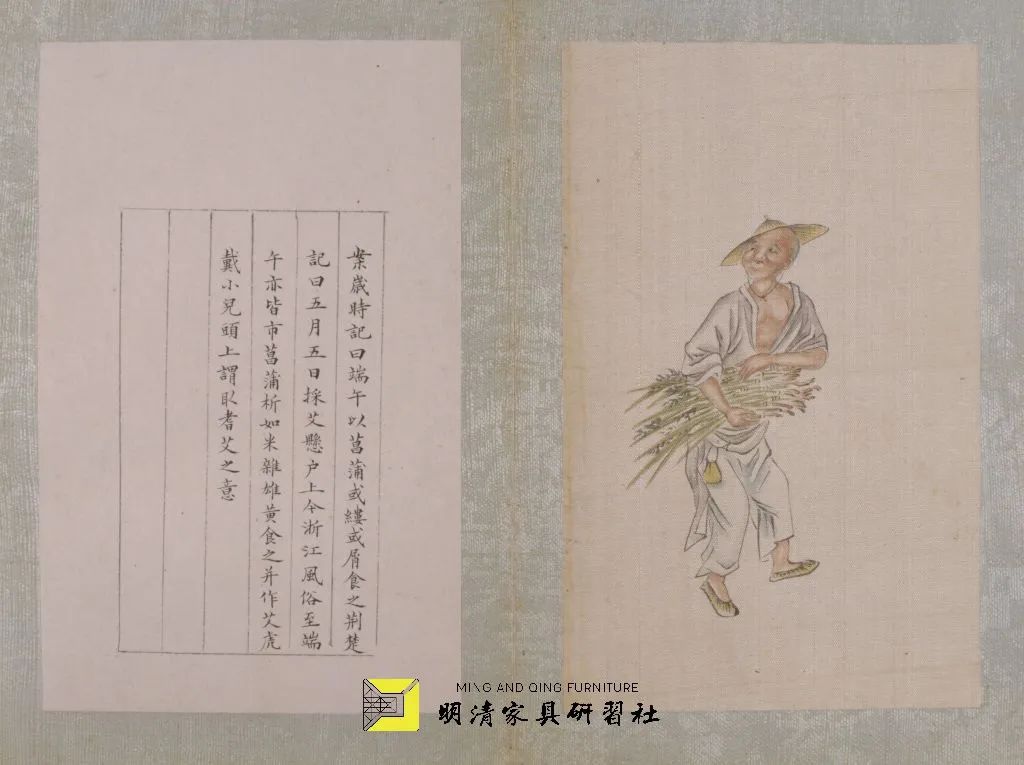 案歲時記曰端午以菖蒲或縷或屑食之荆楚
記曰五月五日採艾懸户上今浙江風俗至端
午亦皆市菖蒲析如米雜雄黄食之并作艾虎
戴小兒頭上謂取耆艾之意
MING AND QING FURNITURE
明清家具研習社